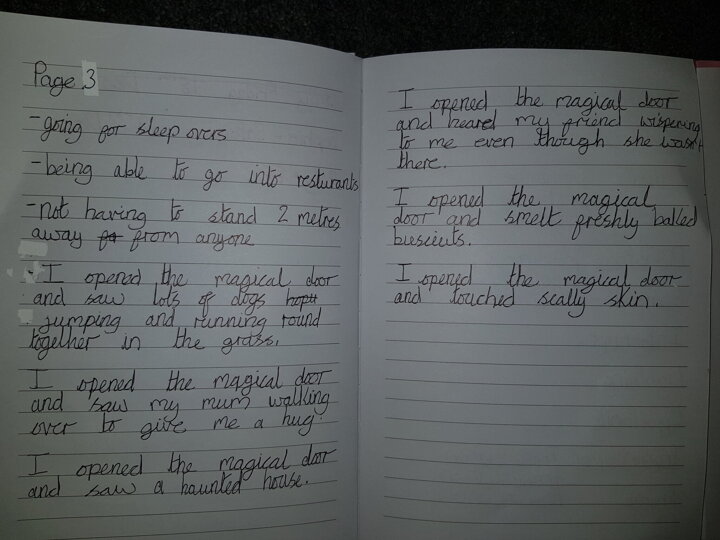 Page 3
-going for sleep overs
-being able to go into resturants
-not having to stand 2 metres
away from anyone
- I opened the magical door
and saw lots of dogs
jumping and running round
together in the grass.
I opened the magical door
and saw my mum walking
over to give me a hug.
I opened the magical door
and saw a haunted house.
I opened the magical door
and heard my friend wispering
to me even though she wasn't
there.
I opened the magical
door and smelt freshly baked
biscuits.
I opened the magical door
and touched scally skin.